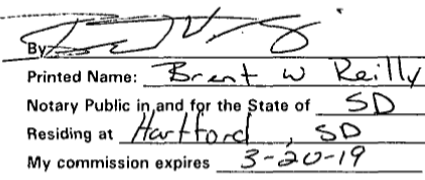 By
Printed Name: Brent W Reilly
Notary Public in and for the State of SD
Residing at Hartford, SD
My commission expires 3-20-19